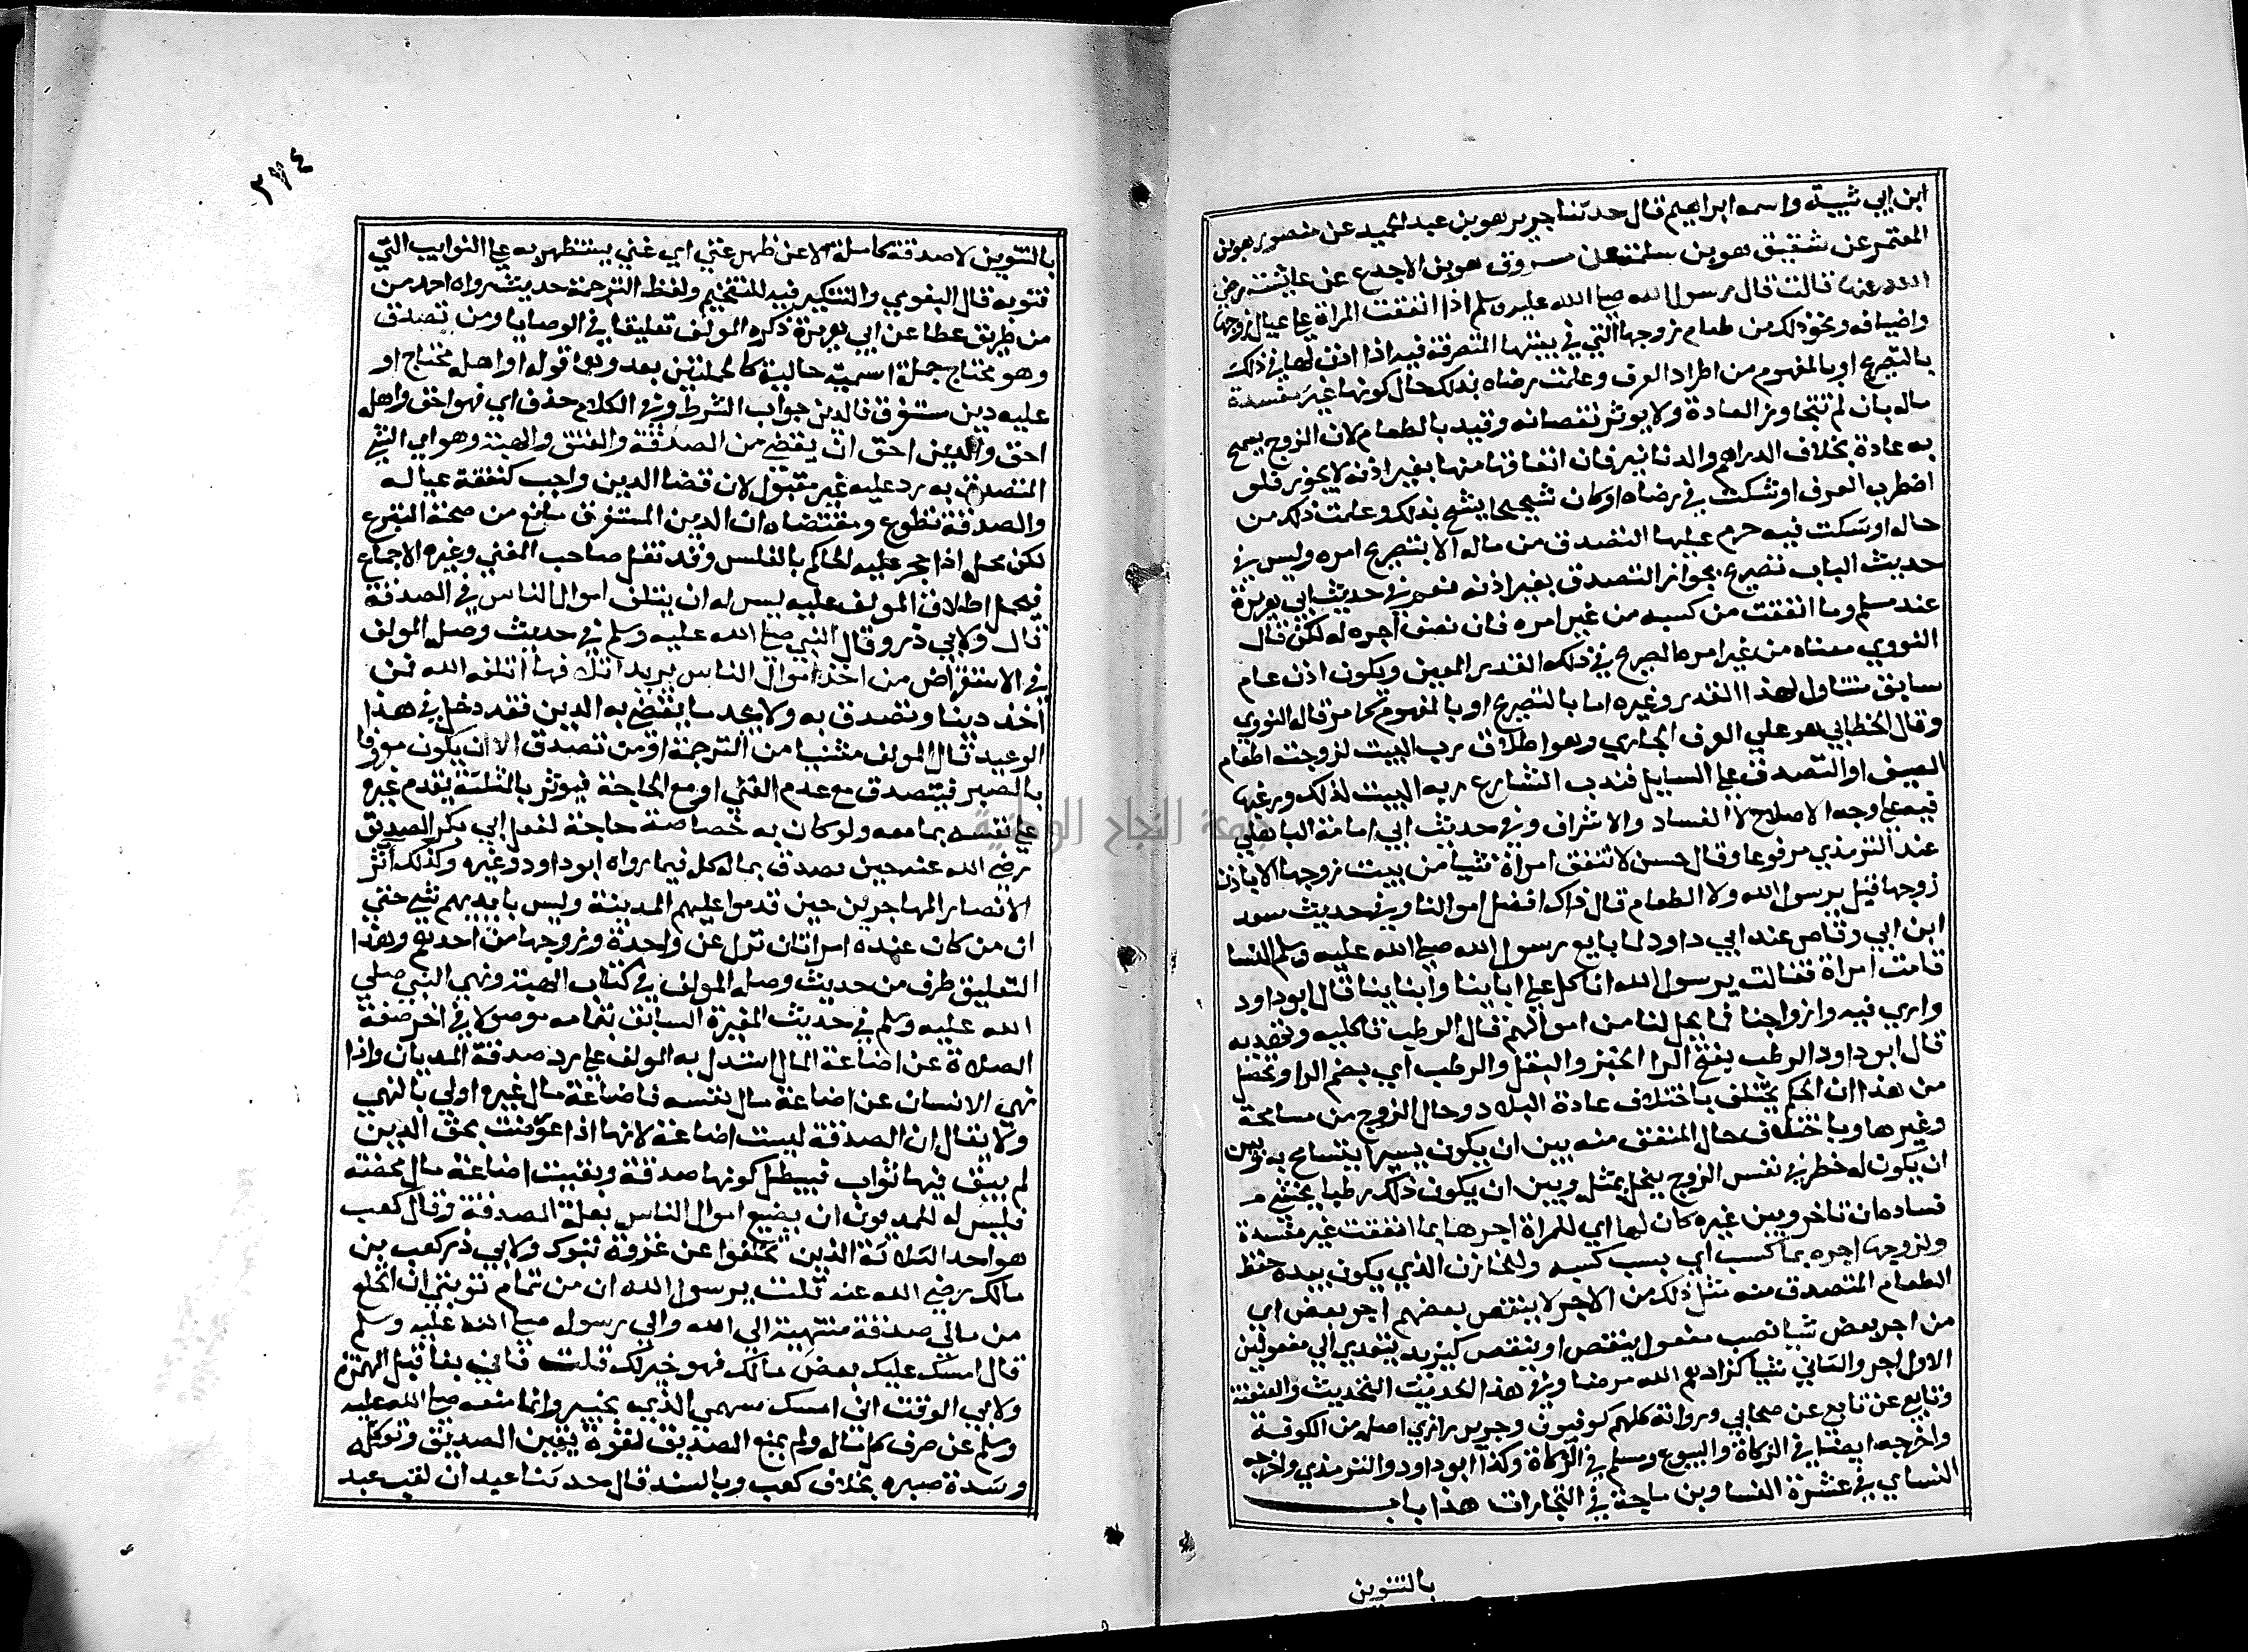 ابن ابي شيبة واسمه ابراهيم قال حدثنا جرير هو بن عبد الحميد عن منصور هو بن
المعتمر عن شقيق هو بن سلمة عن مسروق هو بن الاجدع عن عايشة رضي
الله عنها قالت قال رسول الله صلى الله عليه وسلم اذا انفقت المراة على عيال زوجها
واضيافه ونحو ذلك من طعام زوجها التي في بيتها المتصرفة فيه اذا اذن لها في ذلك
بالتصريح او بالمفهوم من اطراد العرف وعلمت رضاه بذلك حال كونها غير مفسدة
ماله بان لم تتجاوز العادة ولا يوثر نقصانه وقيد بالطعام لان الزوج يسمح
به عادة بخلاف الدراهم والدنانير فان انفاقها منها بغير اذنه لا يجوز فلو
اضطرب العرف او شكت في رضاه او كان شحيحا يشح بذلك وعلمت ذلك من
حاله او سكت فيه حرم عليها التصدق من ماله الا بتصريح امره وليس في
حديث الباب تصريح بجواز التصدق بغير اذنه نعم في حديث ابي هريرة
عند مسلم وما انفقت من كسبه من غير امره فان نصف اجره له لكن قال
النووي معناه من غير امره الصريح في ذلك القدر المعين ويكون اذن عام
سابق متناول لهذا القدر وغيره اما بالتصريح او بالمفهوم كما مر قاله النووي
وقال الخطابي هو علي العرف الجاري وهو اطلاق رب البيت لزوجته اطعام
الضيف او التصدق على السايل فندب الشارع ربه البيت لذلك ورغبها
فيه على وجه الاصلاح لا الفساد والاشراف وفي حديث ابي امامة الباهلي
عند الترمذي مرفوعا وقال حسن لا تنفق امراة شيا من بيت زوجها الا باذن
زوجها قيل يرسول الله ولا الطعام قال ذاك افضل اموالنا وفي حديث سعد
ابن ابي وقاص عند ابي داود لما بايع رسول الله صلى الله عليه وسلم النسا
قامت امراة فقالت يرسول الله انا كل علي ابائنا وابناينا قال ابو داود
واري فيه وازواجنا فما يحل لنا من اموالهم قال الرطب تاكليه وتهديه
قال ابو داود الرطب بفتح الرا الخبز والبقل والرطب اي بضم الرا وتحصل
من هذا ان الحكم يختلف باختلاف عادة البلاد وحال الزوج من مسامحة
وغيرها وباختلاف حال المنفق منه بين ان يكون يسيرا يتسامح به وبين
ان يكون له خطر في نفس الزوج يبخل بمثله وبين ان يكون ذلك رطبا يخشى
فساده ان تاخر وبين غيره كان لها اي للمراة اجرها بما انفقت غير مفسدة
ولزوجها اجره بما كسب اي بسبب كسبه وللخازن الذي يكون بيده حفظ
الطعام المتصدق منه مثل ذلك من الاجر لا ينقص بعضهم اجر بعض اي
من اجر بعض شيا نصب مفعول ينقص او ينقص كيزيد يتعدي الي مفعولين
الاول اجر والثاني شيا كزادهم الله مرضا وفي هذا الحديث التحديث والعنعنة
وتابعي عن تابعي عن صحابي ورواته كلهم كوفيون وجرير رازي اصله من الكوفة
واخرجه ايضا في الزكاة والبيوع ومسلم في الزكاة وكذا ابو داود والترمذي واخرجه
النساي في عشرة النسا وبن ماجة في التجارات هذا باب
بالتنوين
٢٧٤
بالتنوين لا صدقة كاملة الا عن ظهر غني اي غني يستظهر به على النوايب التي
تنوبه قال البغوي والتنكير فيه للتفخيم ولفظ الترجمة حديث رواه احمد من
من طريق عطا عن ابي هريرة ذكره المولف تعليقا في الوصايا ومن تصدق
وهو محتاج جملة اسمية حالية كالجملتين بعد وهما قوله او اهله محتاج او
عليه دين مستغرق فالدين جواب الشرط وفي الكلام حذف اي فهو احق واهله
احق والدين احق ان يقضي من الصدقة والعتق والهبة وهو اي الشي
المتصدق به رد عليه غير مقبول لان قضا الدين واجب كنفقة عياله
والصدقة تطوع ومقتضاه ان الدين المستغرق مانع من صحة التبرع
لكن محله اذا حجر عليه الحاكم بالفلس وقد نقل صاحب المغني وغيره الاجماع
فيحمل اطلاق المولف عليه ليس له ان يتلف اموال الناس في الصدقة
قال ولابي ذر وقال النبي صلى الله عليه وسلم في حديث وصله المولف
في الاستقراض من اخذ اموال الناس يريد اتلافها اتلفه الله فمن
اخذ دينا وتصدق به ولا يجد ما يقضي به الدين فقد دخل في هذا
الوعيد قال المولف مثنيا من الترجمة او من تصدق الا ان يكون معروفا
بالصبر فيتصدق مع عدم الغني او مع الحاجة فيوثر بالمثلثة يقدم غيره
على نفسه بما معه ولو كان به خصاصة حاجة لفعل ابي بكر الصديق
رضي الله عنه حين تصدق بماله كله فيما رواه ابو داود وغيره وكذلك اثر
الانصار المهاجرين حين قدموا عليهم المدينة وليس بايديهم شي حتي
ان من كان عنده امراتان نزل عن واحدة وزوجها من احدهم وهذا
التعليق طرف من حديث وصله المولف في كتاب الهبة ونهي النبي صلي
الله عليه وسلم في حديث المغيرة السابق بتمامه موصولا في اخر صفة
الصلاة عن اضاعة المال استدل به المولف على رد صدقة المديان واذا
نهي الانسان عن اضاعة مال نفسه فاضاعة مال غيره اولي بالنهي
ولا يقال ان الصدقة ليست اضاعة لانها اذا عوضت بحق الدين
لم يبق فيها ثواب فيبطل كونها صدقة وبقيت اضاعة مال محضة
فليس له للمديون ان يضيع اموال الناس بعلة الصدقة وقال كعب
هو احد الثلاثة الذين تخلفوا عن غزوة تبوك ولابي ذر كعب بن
مالك رضي الله عنه قلت يرسول الله ان من تمام توبتي ان انخلع
من مالي صدقة منتهية الي الله والي رسوله صلى الله عليه وسلم
قال امسك عليك بعض مالك فهو خير لك قلت فاني بفا قبل الهمزة
ولابي الوقت اني امسك سهمي الذي بخيبر وانما منعه صلى الله عليه
وسلم عن صرف كل ماله ولم يمنع الصديق لقوة يقين الصديق وتوكله
وشدة صبره بخلاف كعب وبالسند قال حدثنا عبدان لقب عبد
جامعة النجاح الوطنية